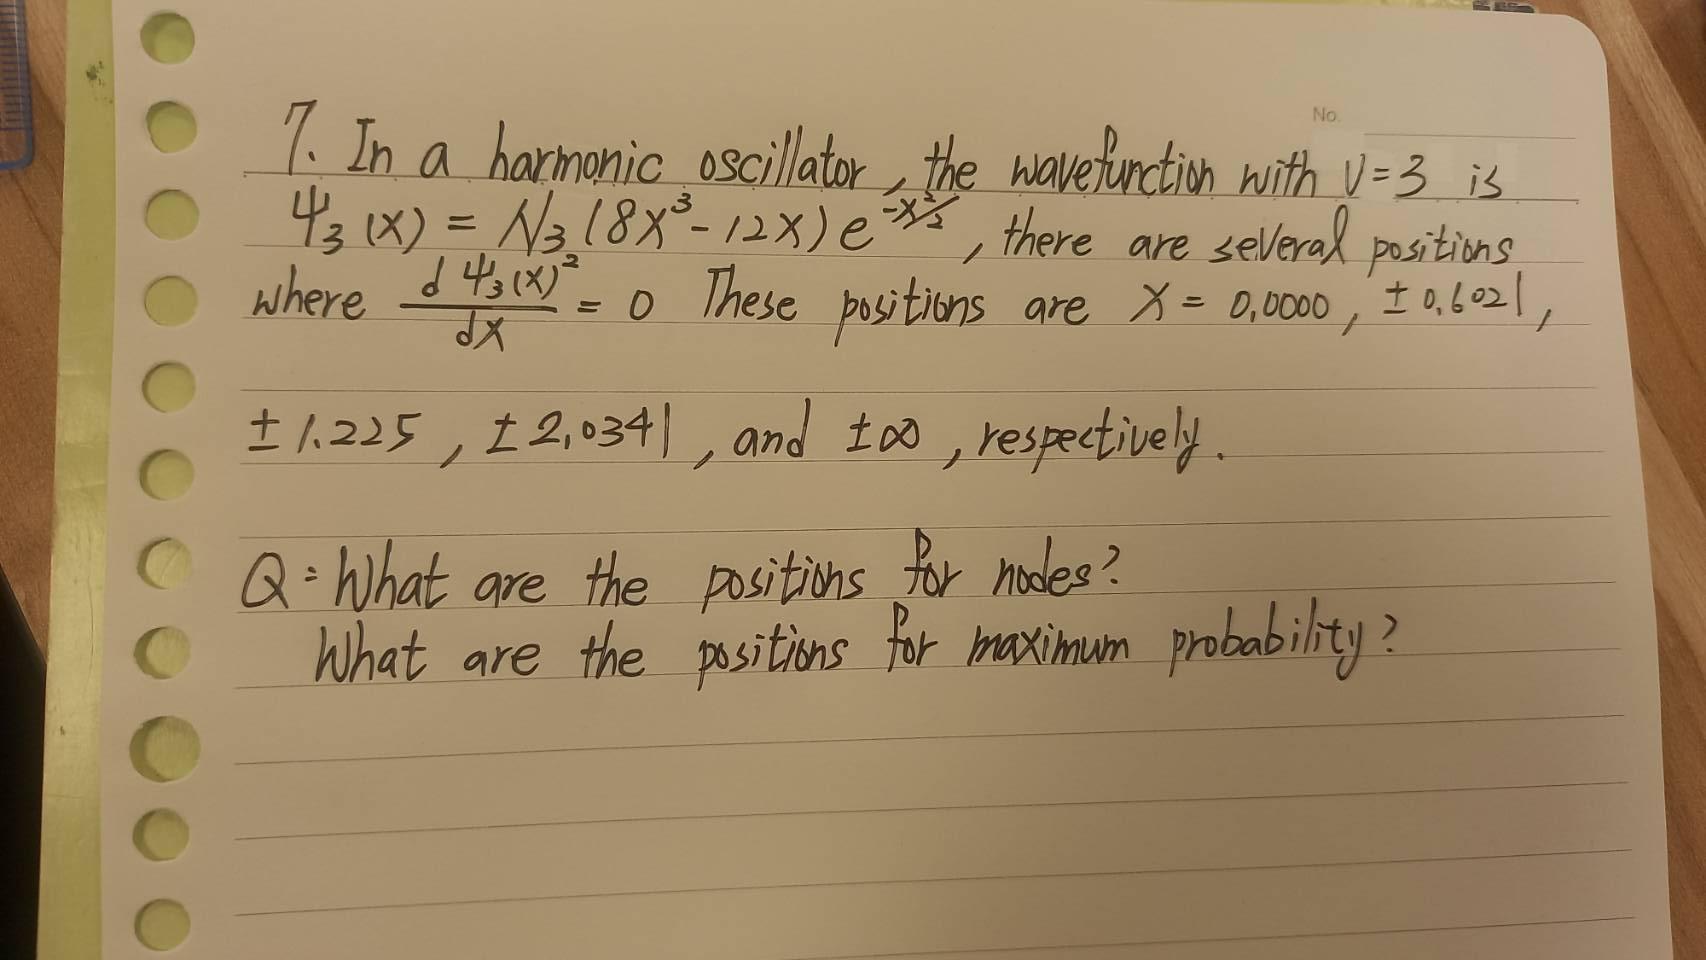 No.
7. In a harmonic oscillator, the wavefunction with v=3 is
Ψ₃(x) = N₃(8x³-12x)e^(-x²/2), there are several positions
where dΨ₃(x)²/dx = 0 These positions are x = 0.0000, ±0.6021,
±1.225, ±2.0341, and ±∞, respectively.
Q: What are the positions for nodes?
What are the positions for maximum probability?